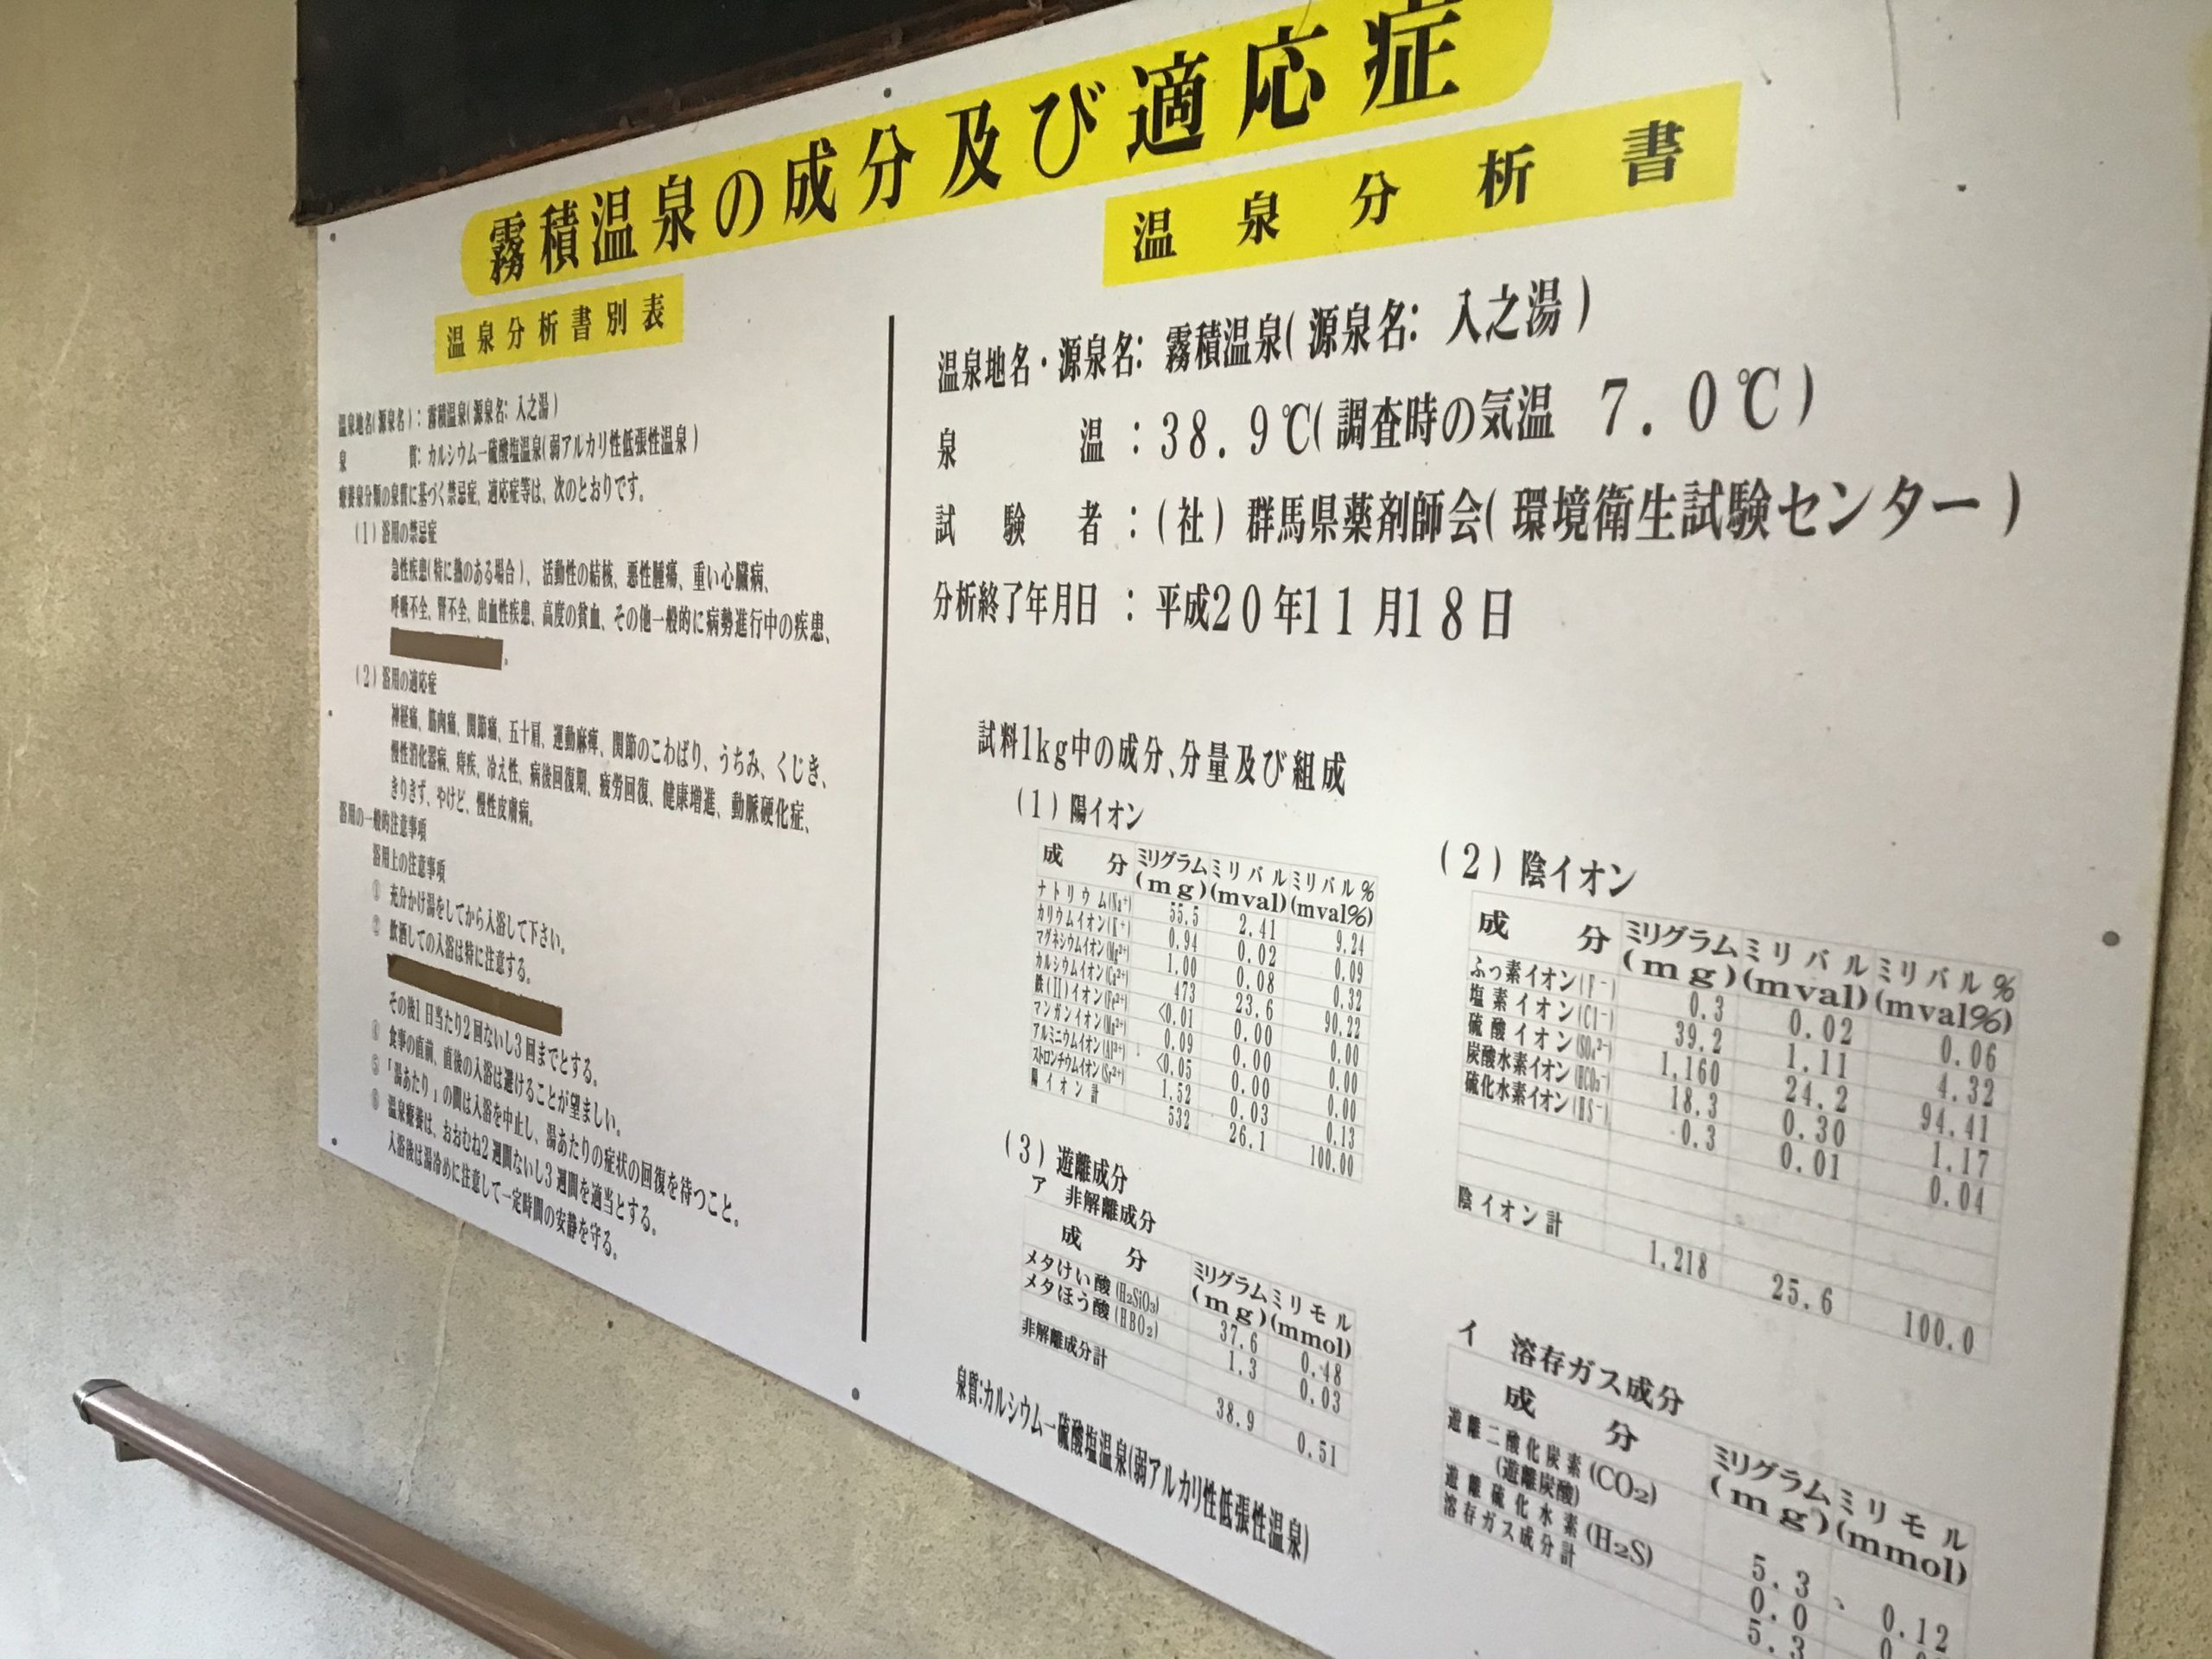 霧積温泉の成分及び適応症
温泉分析書別表
温泉地名(源泉名)：霧積温泉(源泉名：入之湯)
泉　質：カルシウム－硫酸塩温泉(弱アルカリ性低張性温泉)
療養泉分類の泉質に基づく禁忌症、適応症等は、次のとおりです。
(1)浴用の禁忌症
急性疾患(特に熱のある場合)、活動性の結核、悪性腫瘍、重い心臓病、
呼吸不全、腎不全、出血性疾患、高度の貧血、その他一般的に病勢進行中の疾患、
。
(2)浴用の適応症
神経痛、筋肉痛、関節痛、五十肩、運動麻痺、関節のこわばり、うちみ、くじき、
慢性消化器病、痔疾、冷え性、病後回復期、疲労回復、健康増進、動脈硬化症、
きりきず、やけど、慢性皮膚病。
浴用の一般的注意事項
浴用上の注意事項
① 充分かけ湯をしてから入浴して下さい。
② 飲酒しての入浴は特に注意する。
その後1日当たり2回ないし3回までとする。
④ 食事の直前、直後の入浴は避けることが望ましい。
⑤ 「湯あたり」の間は入浴を中止し、湯あたりの症状の回復を待つこと。
⑥ 温泉療養は、おおむね2週間ないし3週間を適当とする。
入浴後は湯冷めに注意して一定時間の安静を守る。
温泉分析書
温泉地名・源泉名：霧積温泉(源泉名：入之湯)
泉　温：38.9℃(調査時の気温 7.0℃)
試験者：(社)群馬県薬剤師会(環境衛生試験センター)
分析終了年月日：平成20年11月18日
試料1kg中の成分、分量及び組成
(1)陽イオン
成分 ミリグラム(mg) ミリバル(mval) ミリバル%(mval%)
ナトリウム(Na⁺) 55.5 2.41 9.24
カリウムイオン(K⁺) 0.94 0.02 0.09
マグネシウムイオン(Mg²⁺) 1.00 0.08 0.32
カルシウムイオン(Ca²⁺) 473 23.6 90.22
鉄(II)イオン(Fe²⁺) <0.01 0.00 0.00
マンガンイオン(Mn²⁺) 0.09 0.00 0.00
アルミニウムイオン(Al³⁺) <0.05 0.00 0.00
ストロンチウムイオン(Sr²⁺) 1.52 0.03 0.13
陽イオン計 532 26.1 100.00
(2)陰イオン
成分 ミリグラム(mg) ミリバル(mval) ミリバル%(mval%)
ふっ素イオン(F⁻) 0.3 0.02 0.06
塩素イオン(Cl⁻) 39.2 1.11 4.32
硫酸イオン(SO₄²⁻) 1,160 24.2 94.41
炭酸水素イオン(HCO₃⁻) 18.3 0.30 1.17
硫化水素イオン(HS⁻) 0.3 0.01 0.04
陰イオン計 1,218 25.6 100.0
(3)遊離成分
ア 非解離成分
成分 ミリグラム(mg) ミリモル(mmol)
メタけい酸(H₂SiO₃) 37.6 0.48
メタほう酸(HBO₂) 1.3 0.03
非解離成分計 38.9 0.51
イ 溶存ガス成分
成分 ミリグラム(mg) ミリモル(mmol)
遊離二酸化炭素(CO₂) 5.3 0.12
(遊離炭酸)
遊離硫化水素(H₂S) 0.0
溶存ガス成分計 5.3
泉質：カルシウム－硫酸塩温泉(弱アルカリ性低張性温泉)